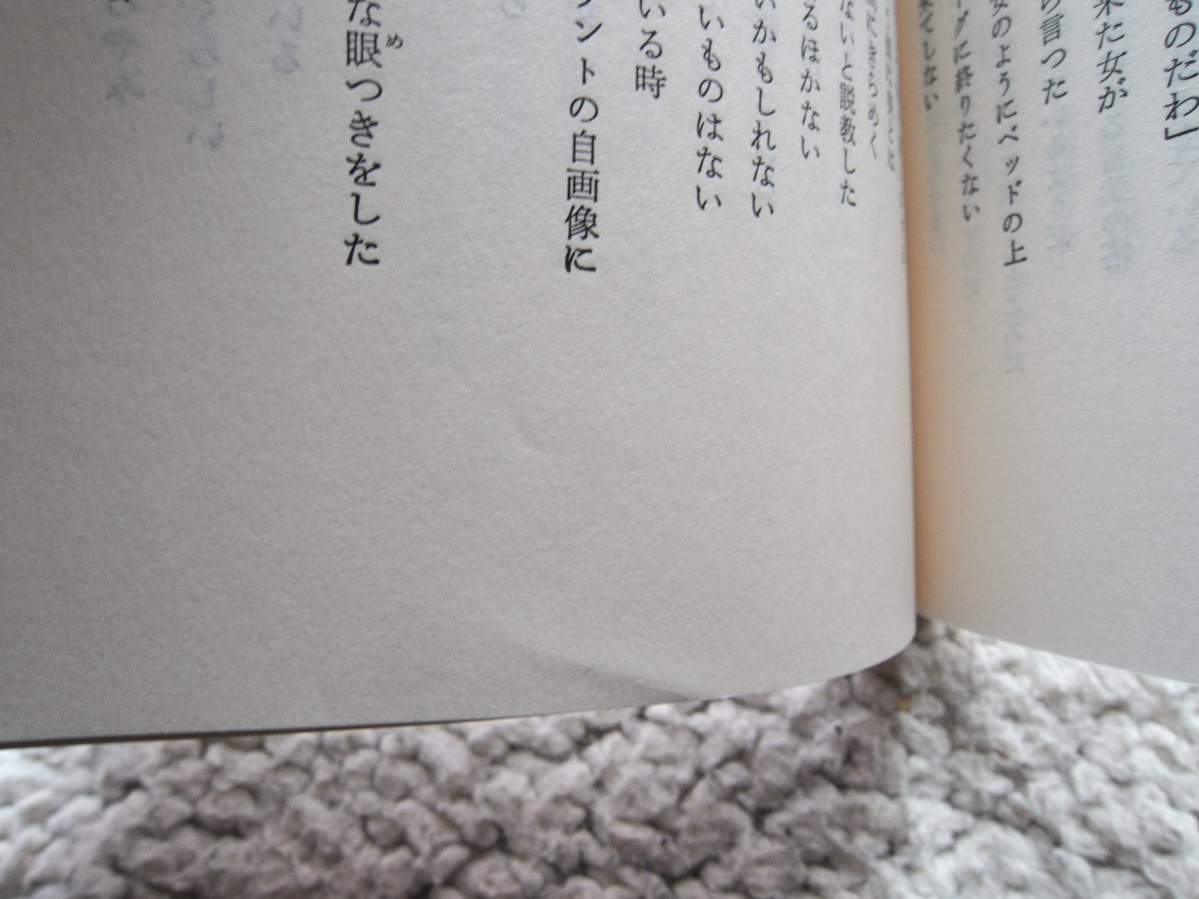 ものだわ」
来た女が
の言った
女のようにベッドの上
ーグに終りたくない
にきらめく
ないと説教した
るほかない
いかもしれない
いものはない
いる時
ントの自画像に
な眼つきをした
め